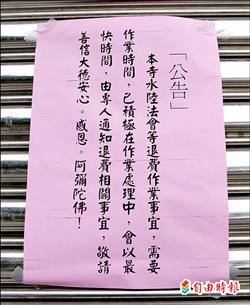 「公告」
本寺水陸法會等退費作業事宜，需要
作業時間，已積極在作業處理中，會以最
快時間，由專人通知退費相關事宜，敬請
善信大德安心。感恩。阿彌陀佛！
自由時報